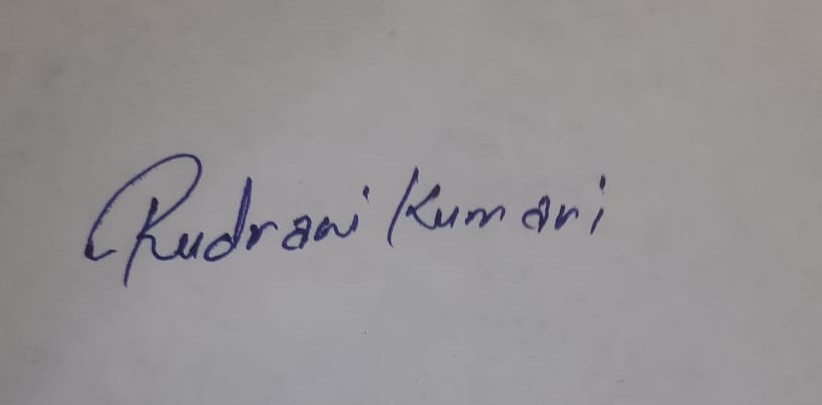 Rudrani Kumari